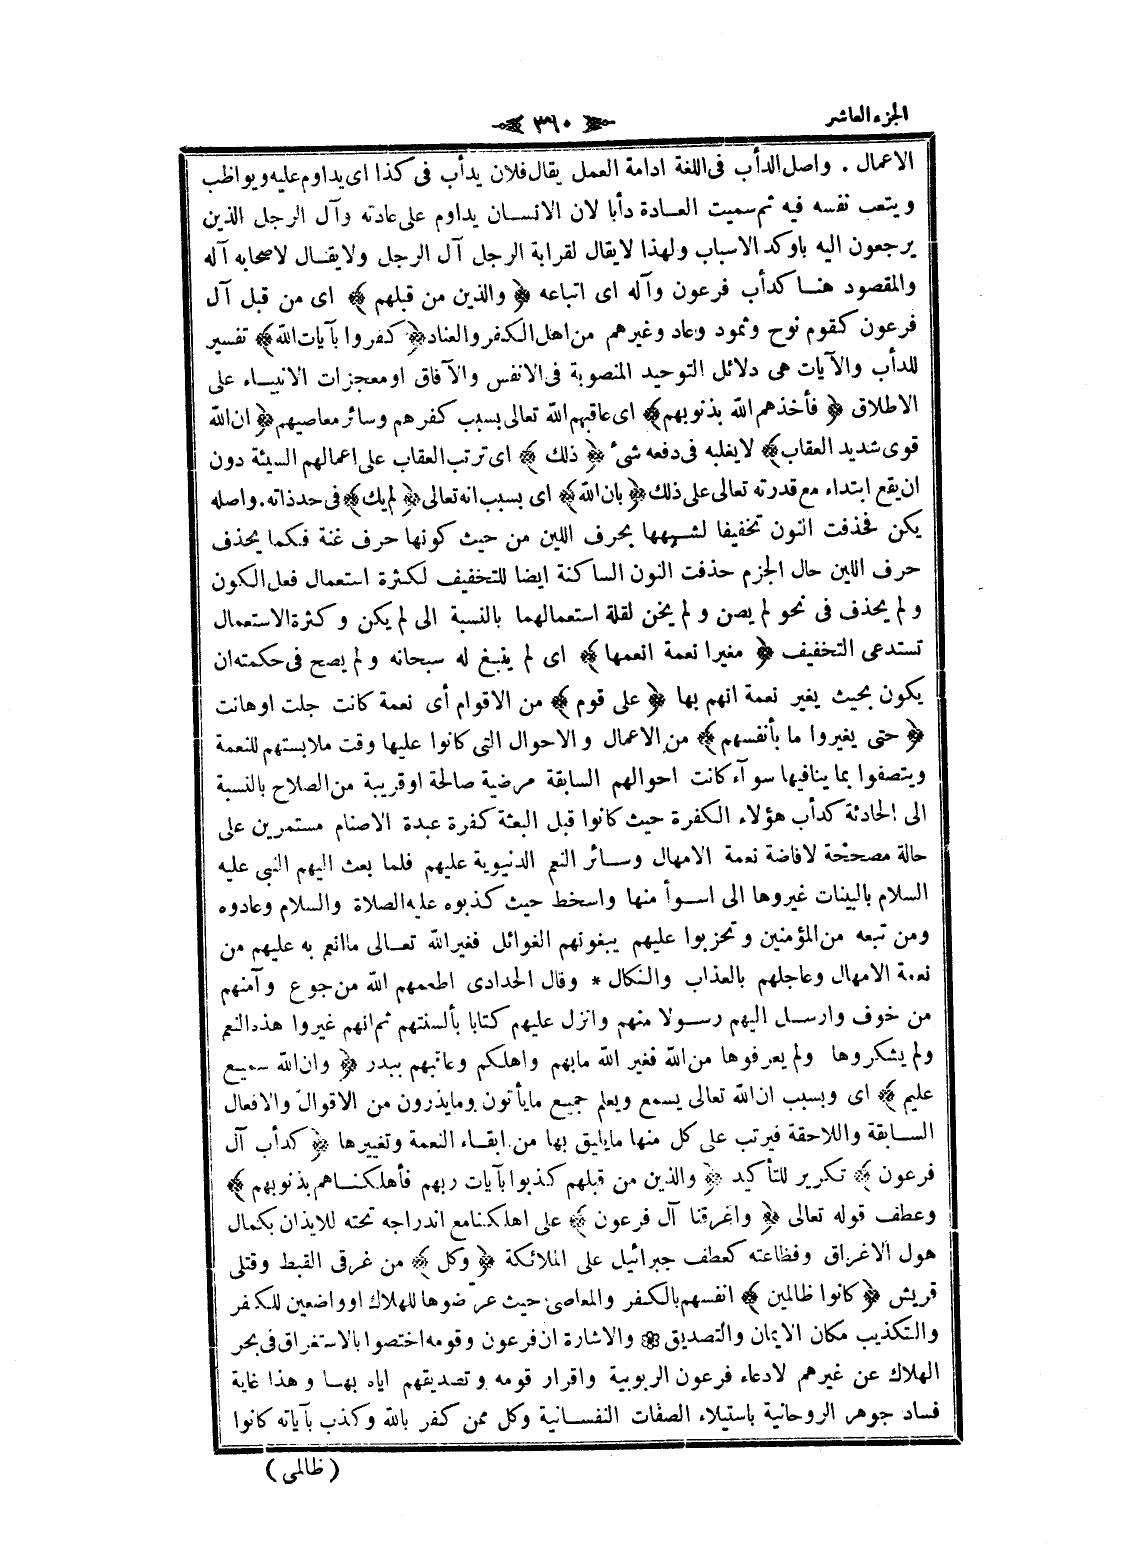 الجزء العاشر
٣٦٠
الاعمال . واصل الدأب فى اللغة ادامة العمل يقال فلان يدأب فى كذا اى يداوم عليه ويواظب
ويتعب نفسه فيه ثم سميت العادة دأبا لان الانسان يداوم على عادته وآل الرجل الذين
يرجعون اليه باوكد الاسباب ولهذا لا يقال لقرابة الرجل آل الرجل ولا يقال لاصحابه آله
والمقصود هنا كدأب فرعون وآله اى اتباعه ﴿ والذين من قبلهم ﴾ اى من قبل آل
فرعون كقوم نوح وثمود وعاد وغيرهم من اهل الكفر والعناد ﴿ كفروا بآيات الله ﴾ تفسير
للدأب والآيات هى دلائل التوحيد المنصوبة فى الانفس والآفاق او معجزات الانبياء على
الاطلاق ﴿ فأخذهم الله بذنوبهم ﴾ اى عاقبهم الله تعالى بسبب كفرهم وسائر معاصيهم ﴿ ان الله
قوى شديد العقاب ﴾ لا يغلبه فى دفعه شئ ﴿ ذلك ﴾ اى ترتب العقاب على اعمالهم السيئة دون
ان يقع ابتداء مع قدرته تعالى على ذلك ﴿ بان الله ﴾ اى بسبب انه تعالى ﴿ لم يك ﴾ فى حد ذاته . واصله
يكن فحذفت النون تخفيفا لشبهها بحرف اللين من حيث كونها حرف غنة فكما يحذف
حرف اللين حال الجزم حذفت النون الساكنة ايضا للتخفيف لكثرة استعمال فعل الكون
ولم يحذف فى نحو لم يصن ولم يخن لقلة استعمالهما بالنسبة الى لم يكن وكثرة الاستعمال
تستدعى التخفيف ﴿ مغيرا نعمة انعمها ﴾ اى لم ينبغ له سبحانه ولم يصح فى حكمته ان
يكون بحيث يغير نعمة انهم بها ﴿ على قوم ﴾ من الاقوام أى نعمة كانت جلت او هانت
﴿ حتى يغيروا ما بأنفسهم ﴾ من الاعمال والاحوال التى كانوا عليها وقت ملابستهم للنعمة
ويتصفوا بما ينافيها سوآء كانت احوالهم السابقة مرضية صالحة او قريبة من الصلاح بالنسبة
الى الحادثة كدأب هؤلاء الكفرة حيث كانوا قبل البعثة كفرة عبدة الاصنام مستمرين على
حالة مصححة لافاضة نعمة الامهال وسائر النعم الدنيوية عليهم فلما بعث اليهم النبى عليه
السلام بالبينات غيروها الى اسوأ منها واسخط حيث كذبوه عليه الصلاة والسلام وعادوه
ومن تبعه من المؤمنين وتحزبوا عليهم يبغونهم الغوائل فغير الله تعالى ما انعم به عليهم من
نعمة الامهال وعاجلهم بالعذاب والنكال * وقال الحدادى اطعمهم الله من جوع وآمنهم
من خوف وارسل اليهم رسولا منهم وانزل عليهم كتابا بألسنتهم ثم انهم غيروا هذه النعم
ولم يشكروها ولم يعرفوها من الله فغير الله مابهم واهلكم وعاقبهم ببدر ﴿ وان الله سميع
عليم ﴾ اى وبسبب ان الله تعالى يسمع ويعلم جميع مايأتون ومايذرون من الاقوال والافعال
السابقة واللاحقة فيرتب على كل منها مايليق بها من ابقاء النعمة وتغييرها ﴿ كدأب آل
فرعون ﴾ تكرير للتأكيد ﴿ والذين من قبلهم كذبوا بآيات ربهم فأهلكناهم بذنوبهم ﴾
وعطف قوله تعالى ﴿ واغرقنا آل فرعون ﴾ على اهلكنا مع اندراجه تحته للايذان بكمال
هول الاغراق وفظاعته كعطف جبرائيل على الملائكة ﴿ وكل ﴾ من غرقى القبط وقتلى
قريش ﴿ كانوا ظالمين ﴾ انفسهم بالكفر والمعاصى حيث عرضوها للهلاك او واضعين للكفر
والتكذيب مكان الايمان والتصديق ۞ والاشارة ان فرعون وقومه اختصوا بالاستغراق فى بحر
الهلاك عن غيرهم لادعاء فرعون الربوبية واقرار قومه وتصديقهم اياه بها وهذا غاية
فساد جوهر الروحانية باستيلاء الصفات النفسانية وكل ممن كفر بالله وكذب بآياته كانوا
( ظالمى )